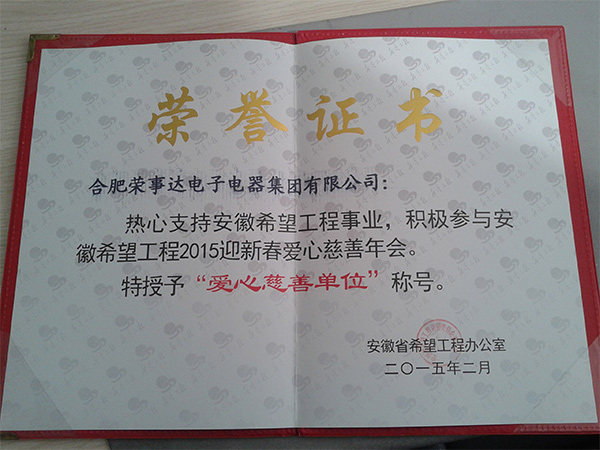 荣誉证书
合肥荣事达电子电器集团有限公司：
热心支持安徽希望工程事业，积极参与安
徽希望工程2015迎新春爱心慈善年会。
特授予“爱心慈善单位”称号。
安徽省希望工程办公室
二〇一五年二月